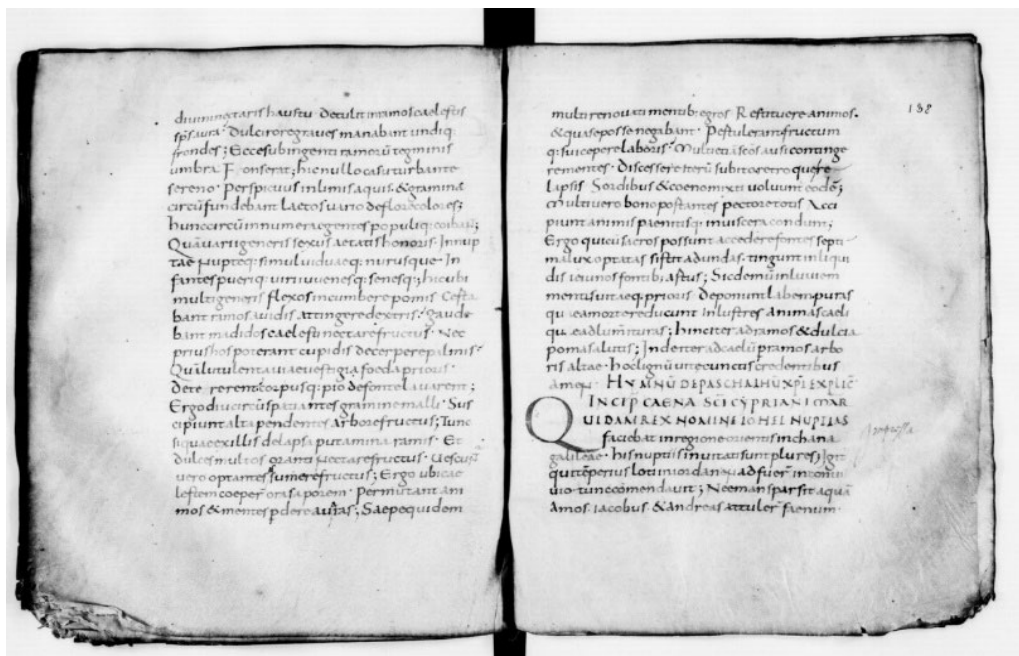 divini nectaris haustu · Detulit in ramos caelestis
sps aura · Dulci rore graves manabant undiq;
frondes; Ecce sub ingenti ramorū tegminis
umbra Fons erat; hic nullo casu turbante
sereno · Perspicuus in limis aquis · & gramina
circūfundebant laetos vario de flore colores;
Hunc circū innumerae gentes populiq; coibant;
Quā varii generis sexus aetatis honoris · Innup
tae nupteq: simul viduaeq: nurusque · In
fantes pueriq: viri iuvenesq: senesq:; hic ubi
multigeneris flexos incumbere pomis Cesta
bant ramos avidis attingere dextris; gaude
bant madidos caelesti nectare fructus · Nec
prius hos poterant cupidis decerpere palmis
Quā lutulenta viae vestigia foeda prioris
Deterent corpusq: pio de fonte lavarent;
Ergo diu circū spatiantes gramine malli · Sus
cipiunt alta pendentes arbore fructus; Tunc
siqua ex illis delapsa putamina ramis · Et
dulces multos nectare fructus · Vescunt
vero optantes sumere fructus; Ergo ubi cae
lestem coeper orasaporem · Permutant ani
mos & mentes pdere avaras; Saepe quidem
138
multi renovati mentib; egros Restituere animos ·
& quae se posse negabant · Pertulerant fructum
q: suscepere laboris · Multi etiā scōs ausi continge
re fontes · Discessere iterū subito retro quere
lapsis Sordibus & coeno mixti volvunt eodē;
Multi vero bono portantes pectore totis Acci
piunt animis paenitusq: in viscera condunt;
Ergo qui cū sacros possunt accedere fontes septi
ma lux optatas sistit ad undas · tingunt in liqui
dis ieiunos fontib; artus; Sic demū inluviem
mentis vitaeq: prioris · Deponunt labem puras
que a morte reducunt inlustres animas caeli
que ad lumīs ituras; hinc iter ad ramos & dulcia
poma salutis; Inde iter ad caelū p ramos arbo
ris altae · hoc lignū vitae cunctis credentibus
amen · HYMNŪ DE PASCHA DNI XPI EXPLIC
INCIP CAENA SCI CYPRIANI MAR
QUIDAM REX NOMINE IOHEL NUPTIAS
faciebat in regione orientis in chana
galileae · his nuptiis invitati sunt plures; Igit
qui tēperius loti in iordane adfuer in convi
vio tunc cōmendavit; Neeman sparsit aquā
Amos · iacobus & andreas attuler faenum ·